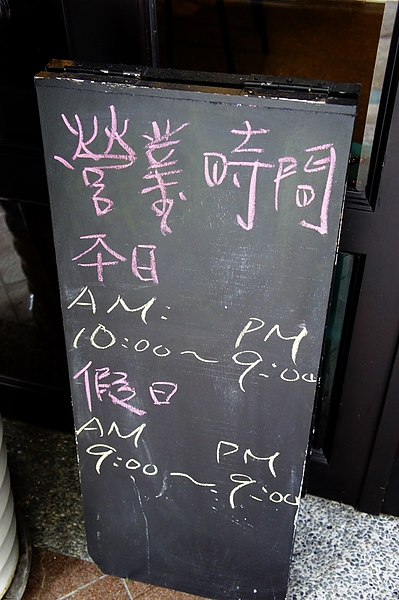 營業時間
平日
AM:
PM
10:00～9:00
假日
AM
PM
9:00～9:00